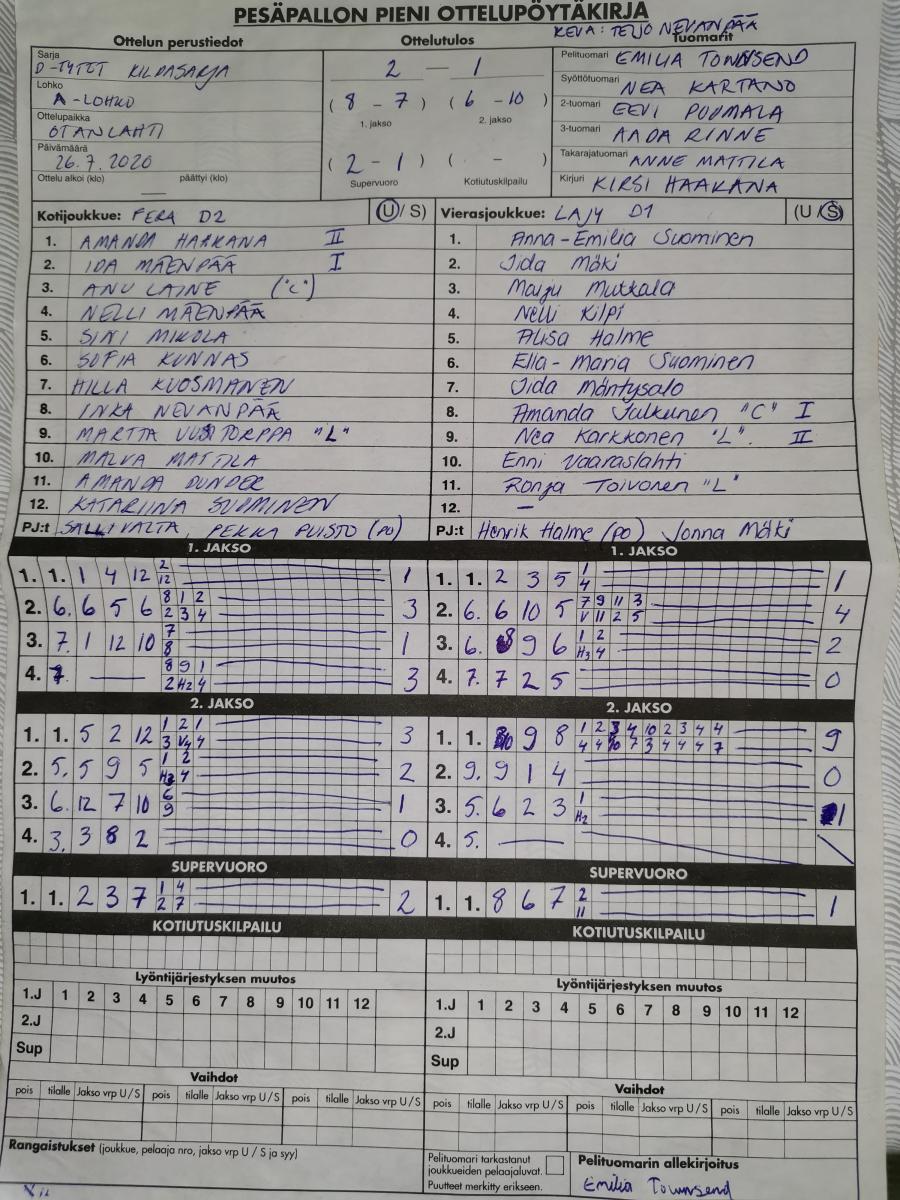 PESÄPALLON PIENI OTTELUPÖYTÄKIRJA
KEVA: TEIJO NEVANPÄÄ
Ottelun perustiedot Ottelutulos Tuomarit
Sarja D-TYTÖT KILPASARJA
Lohko A-LOHKO
Ottelupaikka OTANLAHTI
Päivämäärä 26.7.2020
Ottelu alkoi (klo) — päättyi (klo)
2 — 1
( 8 - 7 ) ( 6 - 10 )
1. jakso 2. jakso
( 2 - 1 ) ( - )
Supervuoro Kotiutuskilpailu
Pelituomari EMILIA TOWNSEND
Syöttötuomari NEA KARTANO
2-tuomari EEVI PUOMALA
3-tuomari AADA RINNE
Takarajatuomari ANNE MATTILA
Kirjuri KIRSI HAAKANA
Kotijoukkue: FERA D2 (U/ S)
1. AMANDA HAAKANA II
2. IDA MÄENPÄÄ I
3. ANU LAINE ("C")
4. NELLI MÄENPÄÄ
5. SINI MIKOLA
6. SOFIA KUNNAS
7. HILLA KUOSMANEN
8. INKA NEVANPÄÄ
9. MARTTA UUSITORPPA "L"
10. MALVA MATTILA
11. AMANDA DUNDER
12. KATARIINA SUOMINEN
PJ:t SALLI VALTA, PEKKA PUISTO (PO)
Vierasjoukkue: LAJY D1 (U / S)
1. Anna-Emilia Suominen
2. Iida Mäki
3. Maiju Mutkala
4. Nelli Kilpi
5. Alisa Halme
6. Ella-Maria Suominen
7. Iida Mäntysalo
8. Amanda Julkunen "C" I
9. Nea Karkkonen "L". II
10. Enni Vaaraslahti
11. Ronja Toivonen "L"
12. —
PJ:t Henrik Halme (po) Jonna Mäki
1. JAKSO
1. 1. 1 4 12 2 1
12
2. 6. 6 5 6 8 1 2 3
2 3 4
3. 7. 1 12 10 7 1
8
4. 7. — 8 9 1 3
2 H2 4
2. JAKSO
1. 1. 5 2 12 1 2 1 3
3 V4 4
2. 5. 5 9 5 1 2 2
H3 4
3. 6. 12 7 10 6 1
9
4. 3. 3 8 2 0
SUPERVUORO
1. 1. 2 3 7 1 4 2
2 7
KOTIUTUSKILPAILU
1. JAKSO
1. 1. 2 3 5 1 1
4
2. 6. 6 10 5 7 9 11 3 4
V 11 2 5
3. 6. 8 9 6 1 2 2
H3 4
4. 7. 7 2 5 0
2. JAKSO
1. 1. 10 9 8 1 2 3 4 10 2 3 4 4 9
4 4 10 7 3 4 4 4 7
2. 9. 9 1 4 0
3. 5. 6 2 3 1 1
H2
4. 5. —
SUPERVUORO
1. 1. 8 6 7 2 1
11
KOTIUTUSKILPAILU
Lyöntijärjestyksen muutos
1.J 1 2 3 4 5 6 7 8 9 10 11 12
2.J
Sup
Vaihdot
pois tilalle Jakso vrp U / S pois tilalle Jakso vrp U / S pois tilalle Jakso vrp U / S
Lyöntijärjestyksen muutos
1.J 1 2 3 4 5 6 7 8 9 10 11 12
2.J
Sup
Vaihdot
pois tilalle Jakso vrp U / S pois tilalle Jakso vrp U / S pois tilalle Jakso vrp U / S
Rangaistukset (joukkue, pelaaja nro, jakso vrp U / S ja syy)
Pelituomari tarkastanut
joukkueiden pelaajaluvat.
Puutteet merkitty erikseen.
Pelituomarin allekirjoitus
Emilia Townsend